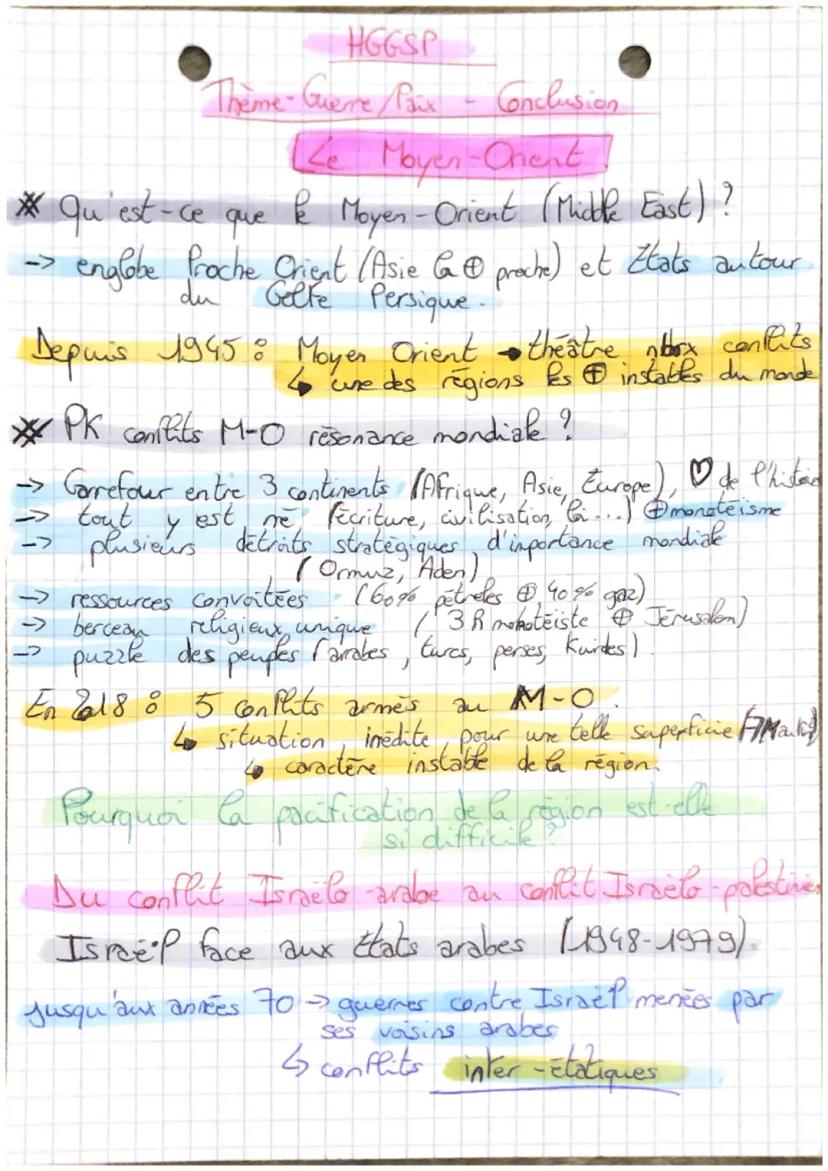 HGGSP
Thème-Guerre/Paix - Conclusion
Le Moyen-Orient
* Qu'est-ce que le Moyen-Orient (Middle East) ?
-> englobe Proche Orient (Asie la ⊕ proche) et États autour
du Golfe Persique.
Depuis 1945 : Moyen Orient → théâtre nbrx conflits
↳ une des régions les ⊕ instables du monde
* PK conflits M-O résonance mondiale ?
-> Carrefour entre 3 continents (Afrique, Asie, Europe), ♡ de l'histoire
-> tout y est né (écriture, civilisation, loi...) ⊕ monotéisme
-> plusieurs détroits stratégiques, d'importance mondiale
(Ormuz, Aden)
-> ressources convoitées (60% pétroles ⊕ 40% gaz)
-> berceau religieux unique (3 R monotéiste ⊕ Jérusalem)
-> puzzle des peuples (arrabes, turcs, perses, Kurdes)
En 2018 : 5 conflits armés au M-O.
↳ situation inédite pour une telle superficie
↳ caractère instable de la région.
Pourquoi la pacification de la région est-elle
si difficile ?
Du conflit Israëlo-arabe au conflit Israëlo-palestinien
Israël face aux états arabes (1948-1979).
jusqu'aux années 70 → guerres contre Israël menées par
ses voisins arabes
↳ conflits inter-étatiques